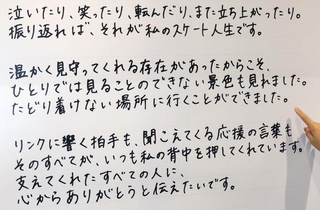 泣いたり、笑ったり、転んだり、また立ち上がったり。
振り返れば、それが私のスケート人生です。
温かく見守ってくれる存在があったからこそ、
ひとりでは見ることのできない景色も見れました。
たどり着けない場所に行くことができました。
リンクに響く拍手も、聞こえてくる応援の言葉も
そのすべてが、いつも私の背中を押してくれています。
支えてくれたすべての人に、
心からありがとうと伝えたいです。